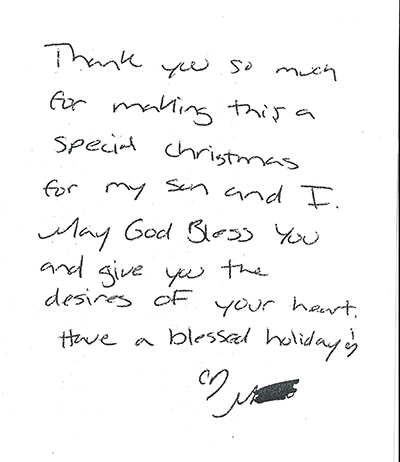 Thank you so much
for making this a
special christmas
for my son and I.
May God Bless You
and give you the
desires of your heart.
Have a blessed holiday!